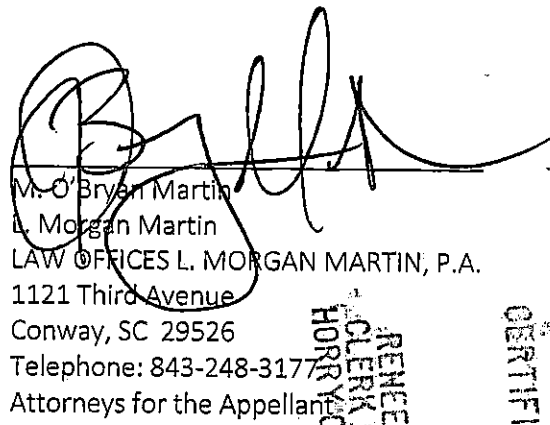 M. O'Bryan Martin
L. Morgan Martin
LAW OFFICES L. MORGAN MARTIN, P.A.
1121 Third Avenue
Conway, SC 29526
Telephone: 843-248-3177
Attorneys for the Appellant
RENEE
CLERK
HORRY CO
CERTIFI